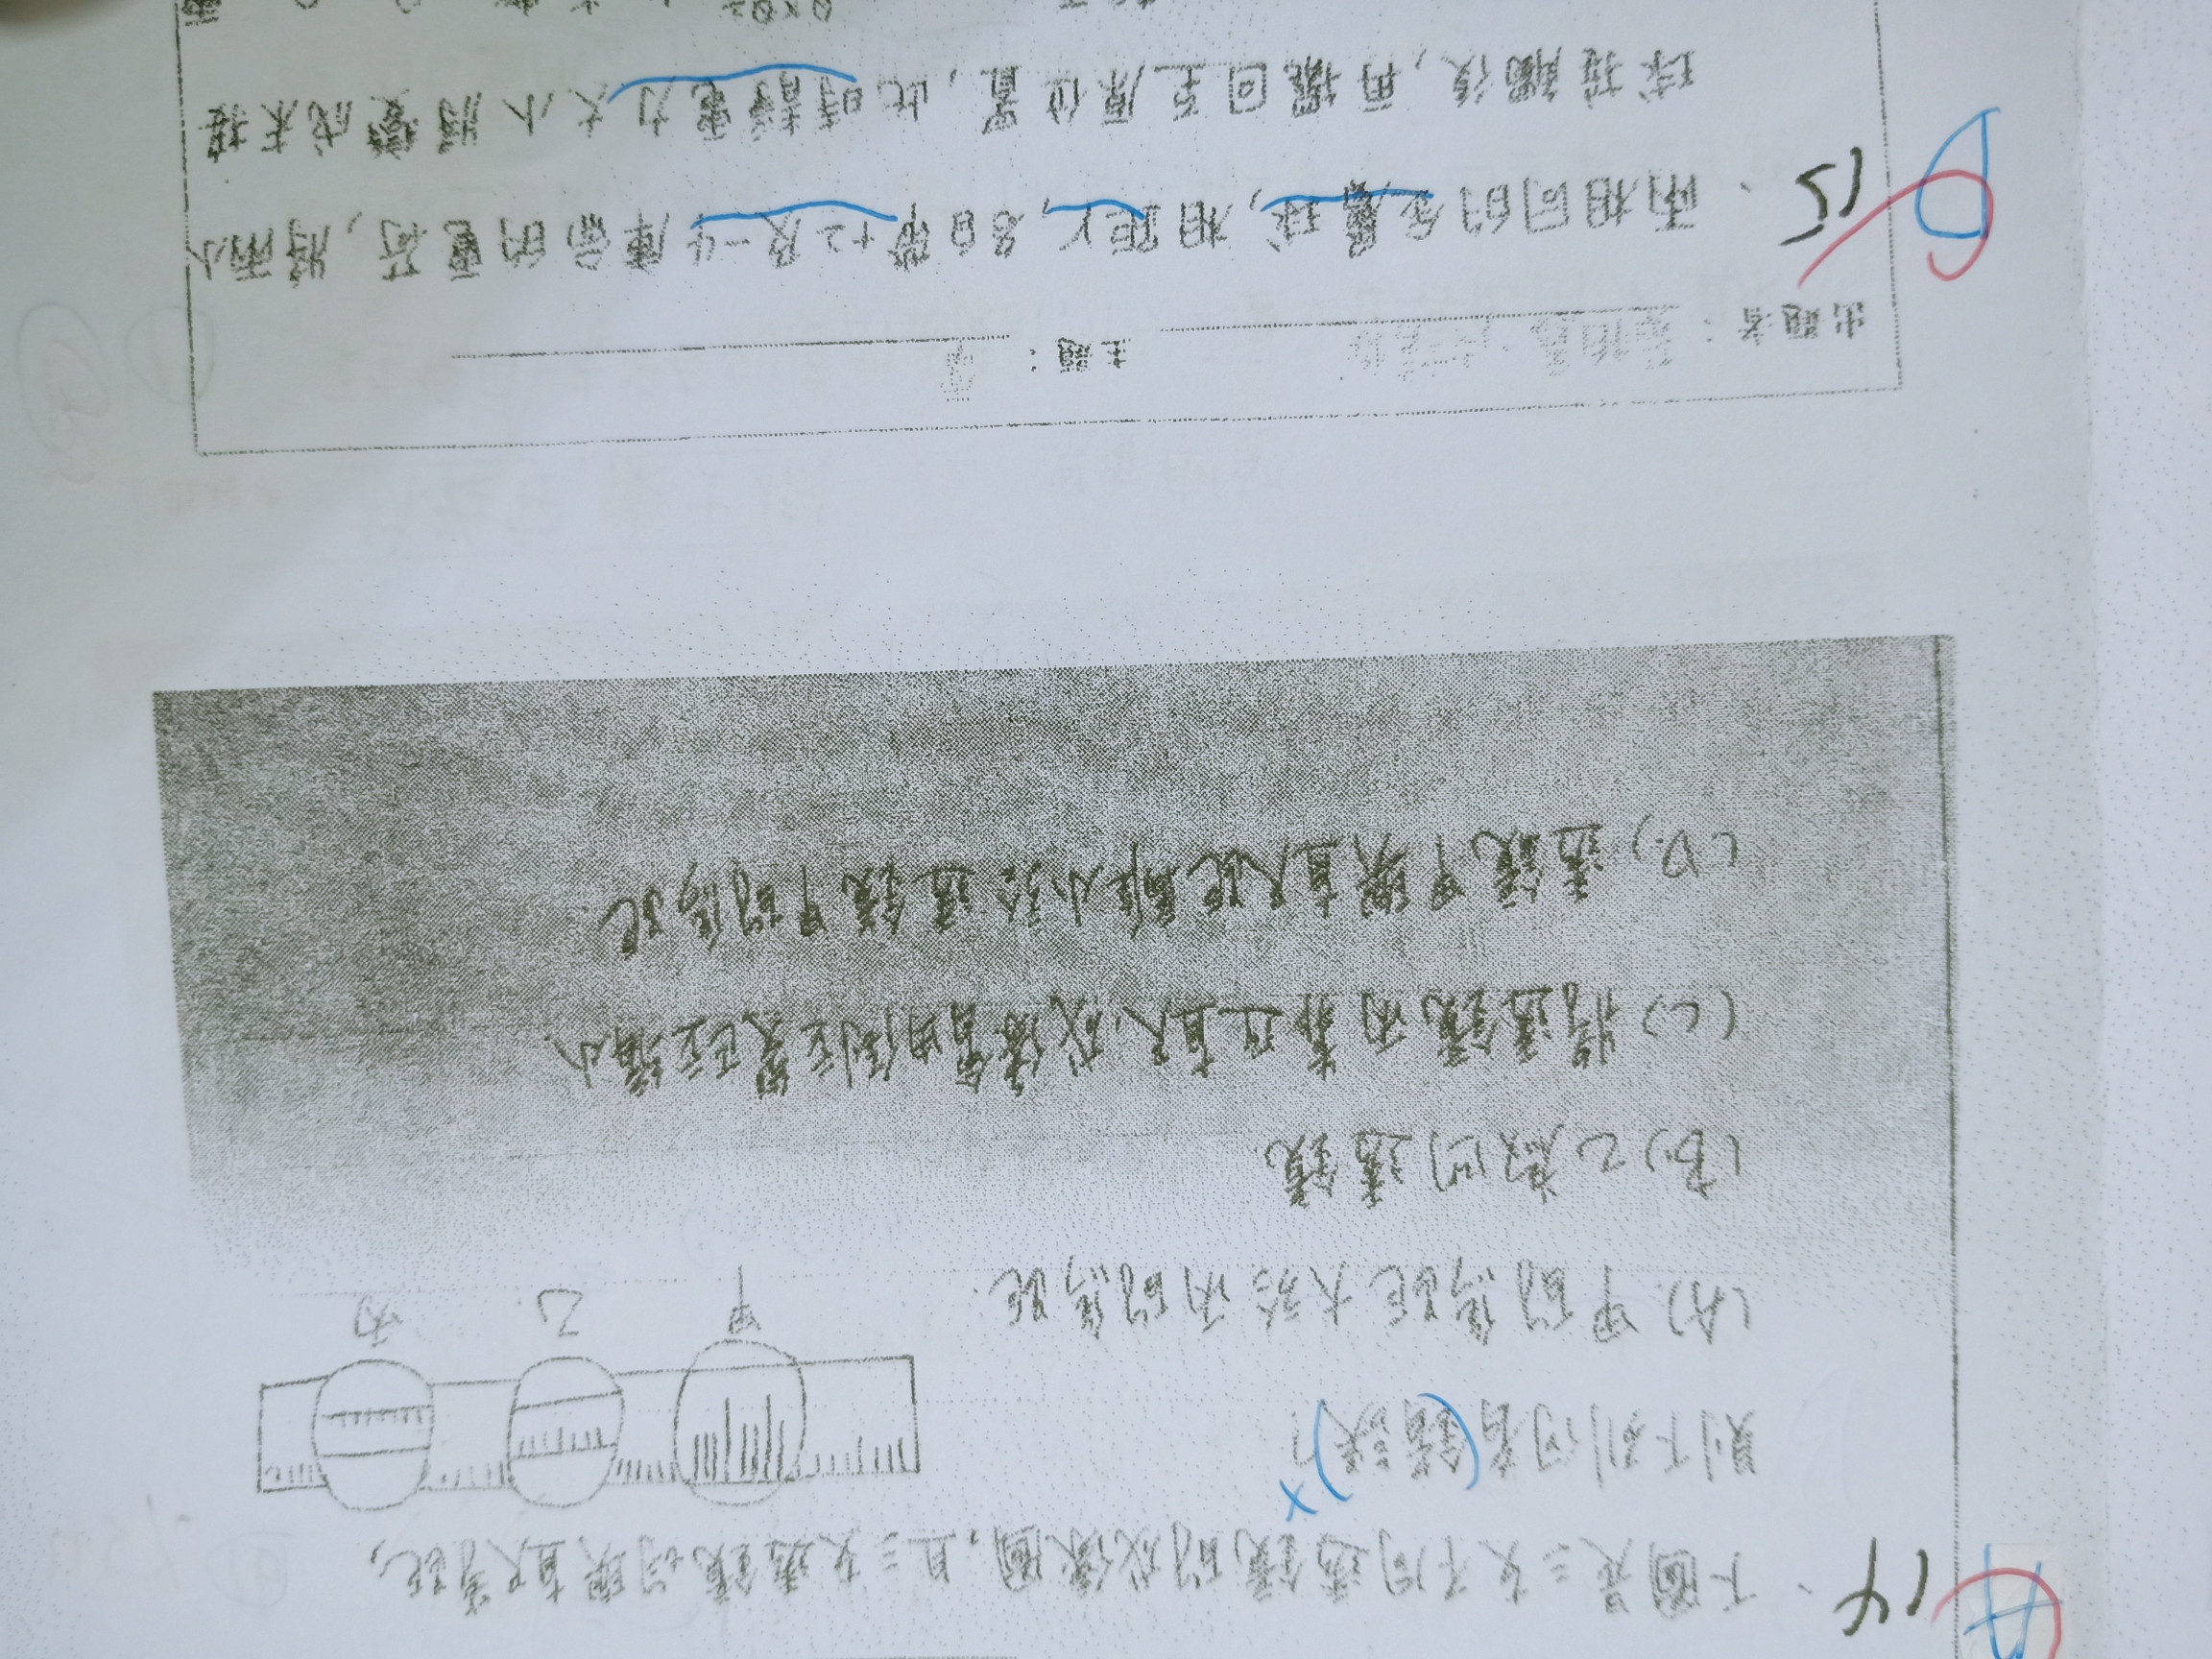 A
14、下圖是三支不同透鏡的成像圖，且三支透鏡均與直尺等距，
則下列何者(錯誤)?
×
甲 乙 丙
(A) 甲的焦距大於丙的焦距
(B) 乙為凹透鏡
(C) 將透鏡丙靠近直尺，成像皆由倒立變正立縮小
(D) 透鏡甲與直尺距離小於透鏡甲的焦距
出題者： 主題：
D
15、兩相同的金屬球，相距r，各自帶+2及-4庫侖的電荷，將兩小
球接觸後，再擺回至原位置，此時靜電力大小將變成未接